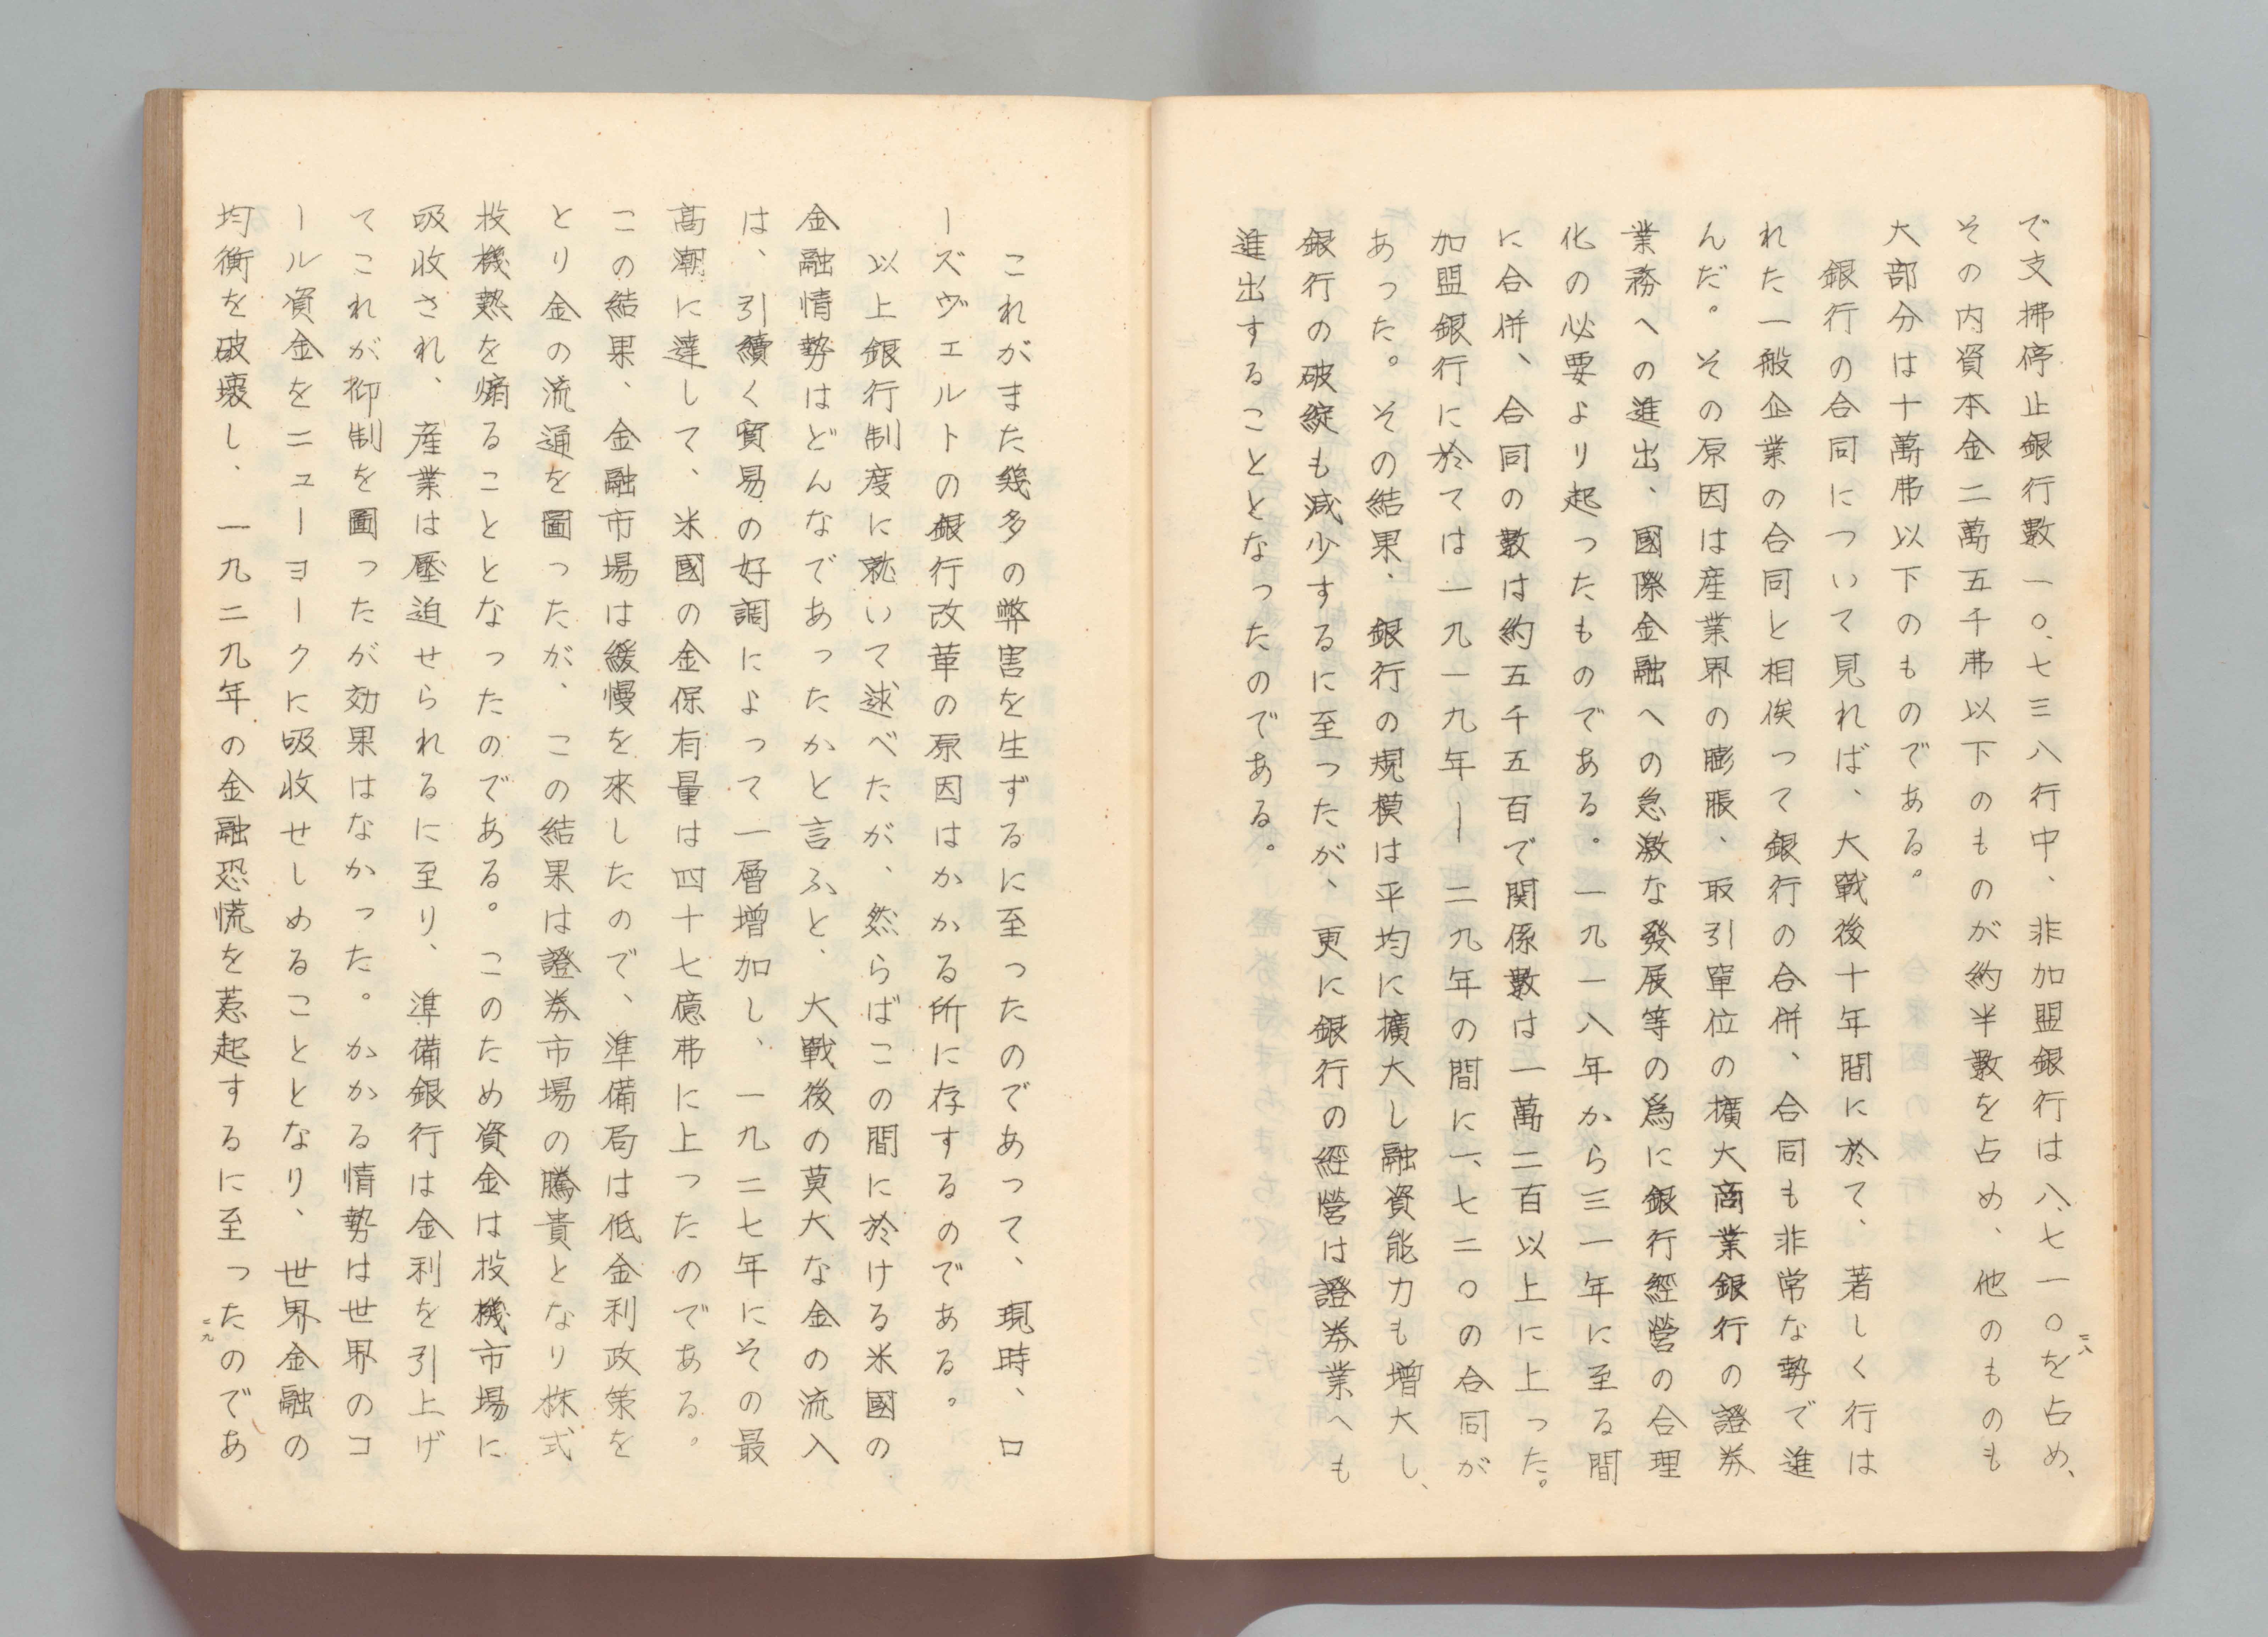 で支拂停止銀行數一〇、七三八行中、非加盟銀行は八、七一〇を占め、
その内資本金二萬五千弗以下のものが約半數を占め、他のものも
大部分は十萬弗以下のものである。
銀行の合同について見れば、大戰後十年間に於て、著しく行は
れた一般企業の合同と相俟つて銀行の合併、合同も非常な勢で進
んだ。その原因は産業界の膨脹、取引單位の擴大商業銀行の證券
業務への進出、國際金融への急激な發展等の爲に銀行經營の合理
化の必要より起つたものである。一九一八年から三一年に至る間
に合併、合同の數は約五千五百で関係數は一萬二百以上に上つた。
加盟銀行に於ては一九一九年ー二九年の間に一、七二〇の合同が
あつた。その結果、銀行の規模は平均に擴大し融資能力も増大し、
銀行の破綻も減少するに至つたが、更に銀行の經營は證券業へも
進出することとなつたのである。
二八
これがまた幾多の弊害を生ずるに至つたのであつて、現時、ロ
ーズヴェルトの銀行改革の原因はかかる所に存するのである。
以上銀行制度に就いて述べたが、然らばこの間に於ける米國の
金融情勢はどんなであつたかと言ふと、大戰後の莫大な金の流入
は、引續く貿易の好調によつて一層増加し、一九二七年にその最
高潮に達して、米國の金保有量は四十七億弗に上つたのである。
この結果、金融市場は緩慢を來したので、準備局は低金利政策を
とり金の流通を圖つたが、この結果は證券市場の騰貴となり株式
投機熱を煽ることとなつたのである。このため資金は投機市場に
吸收され、産業は壓迫せられるに至り、準備銀行は金利を引上げ
てこれが抑制を圖つたが効果はなかつた。かかる情勢は世界のコ
ール資金をニューヨークに吸收せしめることとなり、世界金融の
均衡を破壞し、一九二九年の金融恐慌を惹起するに至つたのであ
二九